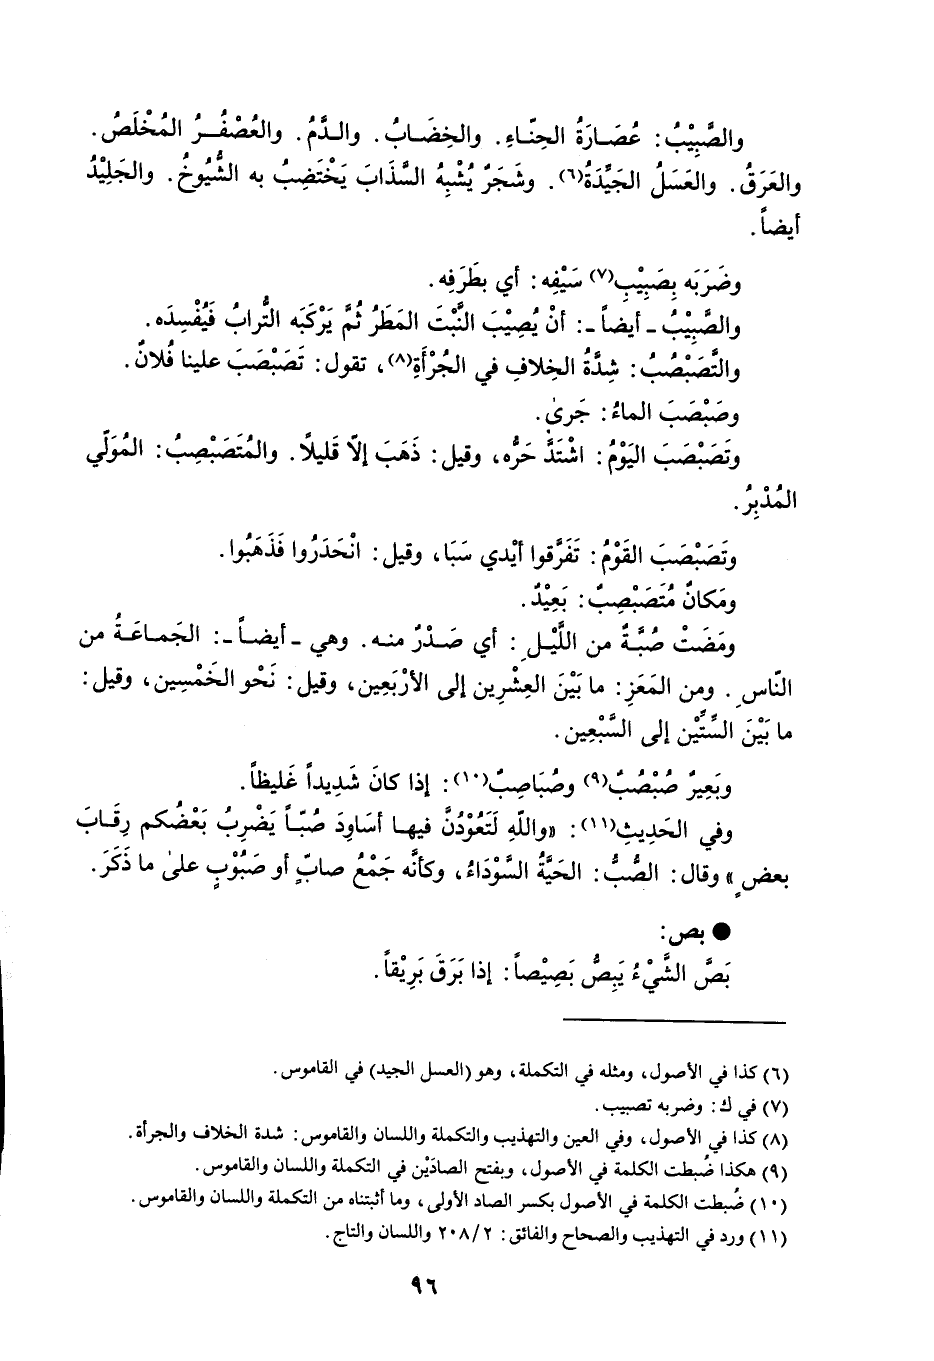 والصَّبِيْبُ: عُصَارَةُ الحِنّاءِ. والخِضَابُ. والدَّمُ. والعُصْفُرُ المُخْلَصُ.
والعَرَقُ. والعَسَلُ الجَيِّدَةُ(٦). وشَجَرٌ يُشْبِهُ السَّذَابَ يَخْتَضِبُ به الشُّيُوخُ. والجَلِيْدُ
أيضاً.
وضَرَبَه بِصَبِيْبِ(٧) سَيْفِه: أي بطَرَفِه.
والصَّبِيْبُ ـ أيضاً ـ: أنْ يُصِيْبَ النَّبْتَ المَطَرُ ثُمَّ يَرْكَبَه التُّرابُ فَيُفْسِدَه.
والتَّصَبْصُبُ: شِدَّةُ الخِلافِ في الجُرْأَةِ(٨)، تقول: تَصَبْصَبَ علينا فُلانٌ.
وصَبْصَبَ الماءُ: جَرىٰ.
وتَصَبْصَبَ اليَوْمُ: اشْتَدَّ حَرُّه، وقيل: ذَهَبَ إلاّ قَليلاً. والمُتَصَبْصِبُ: المُوَلّي
المُدْبِرُ.
وتَصَبْصَبَ القَوْمُ: تَفَرَّقوا أيْدي سَبَا، وقيل: انْحَدَرُوا فَذَهَبُوا.
ومَكانٌ مُتَصَبْصِبٌ: بَعِيْدٌ.
ومَضَتْ صُبَّةٌ من اللَّيْلِ: أي صَدْرٌ منه. وهي ـ أيضاً ـ: الجَماعَةُ من
النّاسِ. ومن المَعَزِ: ما بَيْنَ العِشْرِين إلى الأرْبَعِين، وقيل: نَحْو الخَمْسِين، وقيل:
ما بَيْنَ السِّتِّيْن إلى السَّبْعِين.
وبَعِيرٌ صُبْصُبٌ(٩) وصُبَاصِبٌ(١٠): إذا كانَ شَديداً غَليظاً.
وفي الحَدِيثِ(١١): «واللّهِ لَتَعُوْدُنَّ فيها أسَاوِدَ صُبّاً يَضْرِبُ بَعْضُكم رِقَابَ
بعضٍ» وقال: الصُّبُّ: الحَيَّةُ السَّوْدَاءُ، وكأنَّه جَمْعُ صابّ أو صَبُوْبٍ علىٰ ما ذَكَرَ.
● بص:
بَصَّ الشَّيْءُ يَبِصُّ بَصِيْصاً: إذا بَرَقَ بَرِيْقاً.
(٦) كذا في الأصول، ومثله في التكملة، وهو (العسل الجيد) في القاموس.
(٧) في ك: وضربه تصبيب.
(٨) كذا في الأصول، وفي العين والتهذيب والتكملة واللسان والقاموس: شدة الخلاف والجرأة.
(٩) هكذا ضُبطت الكلمة في الأصول، وبفتح الصادَيْن في التكملة واللسان والقاموس.
(١٠) ضُبطت الكلمة في الأصول بكسر الصاد الأولى، وما أثبتناه من التكملة واللسان والقاموس.
(١١) ورد في التهذيب والصحاح والفائق: ٢٠٨/٢ واللسان والتاج.
٩٦